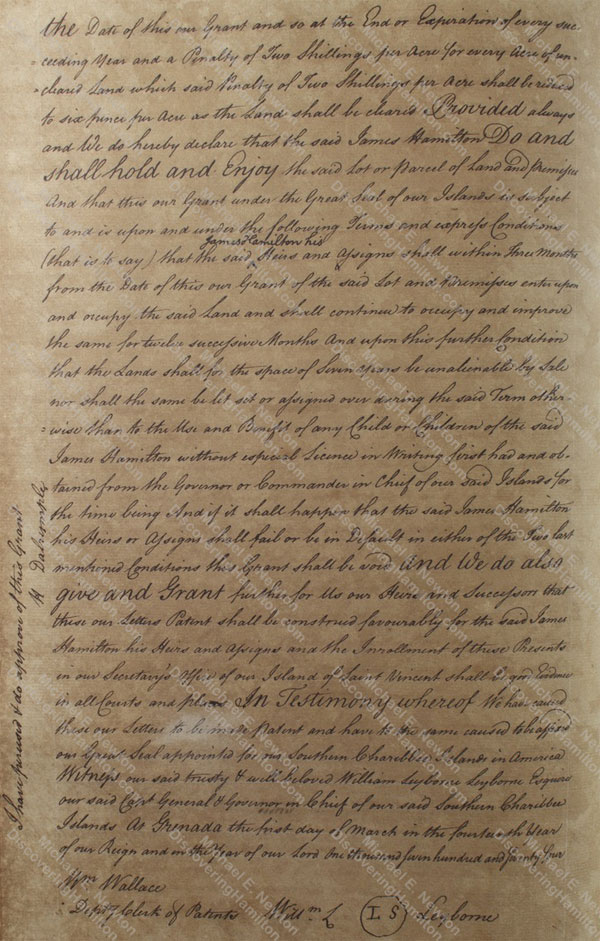 the Date of this our Grant and so at the End or Expiration of every suc-
=ceeding Year and a Penalty of Two Shillings per Acre for every Acre of un-
=cleared Land which said Penalty of Two Shillings per Acre shall be reduced
to six pence per Acre as the Land shall be cleared Provided always
and We do hereby declare that the said James Hamilton Do and
shall hold and Enjoy the said Lot or Parcel of Land and Premisses
And that this our Grant under the Great Seal of our Islands is subject
to and is upon and under the following Terms and express Conditions
James Hamilton his
(that is to say) that the said Heirs and Assigns shall within Three Months
from the Date of this our Grant of the said Lot and Premisses enter upon
and occupy the said Land and shall continue to occupy and improve
the same for twelve successive Months And upon this further Condition
that the Lands shall for the space of Seven years be unalienable by Sale
nor shall the same be let set or assigned over during the said Term other-
=wise than to the Use and Benefit of any Child or Children of the said
James Hamilton without especial Licence in Writing first had and ob-
tained from the Governor or Commander in Chief of our said Islands for
the time being And if it shall happen that the said James Hamilton
his Heirs or Assigns shall fail or be in Default in either of the Two last
mentioned Conditions this Grant shall be void and We do also
give and Grant further for Us our Heirs and Successors that
these our Letters Patent shall be construed favourably for the said James
Hamilton his Heirs and Assigns and the Inrollment of these Presents
in our Secretary's Office of our Island of Saint Vincent shall be good Evidence
in all Courts and places In Testimony whereof We have caused
these our Letters to be made Patent and have to the same caused to be affixed
our Great Seal appointed for our Southern Charibbee Islands in America
Witness our said trusty & well beloved William Leyborne Leyborne Esquire
our said Capt General & Governor in Chief of our said Southern Charibbee
Islands At Grenada the first day of March in the fourteenth Year
of our Reign and in the Year of our Lord One thousand seven hundred and seventy four
Wm Wallace
Depty Clerk of Patents Willm L (L S) Leyborne
I have perused & do approve of this Grant
H Dalrymple
Document Michael E. Newton
DiscoveringHamilton.com